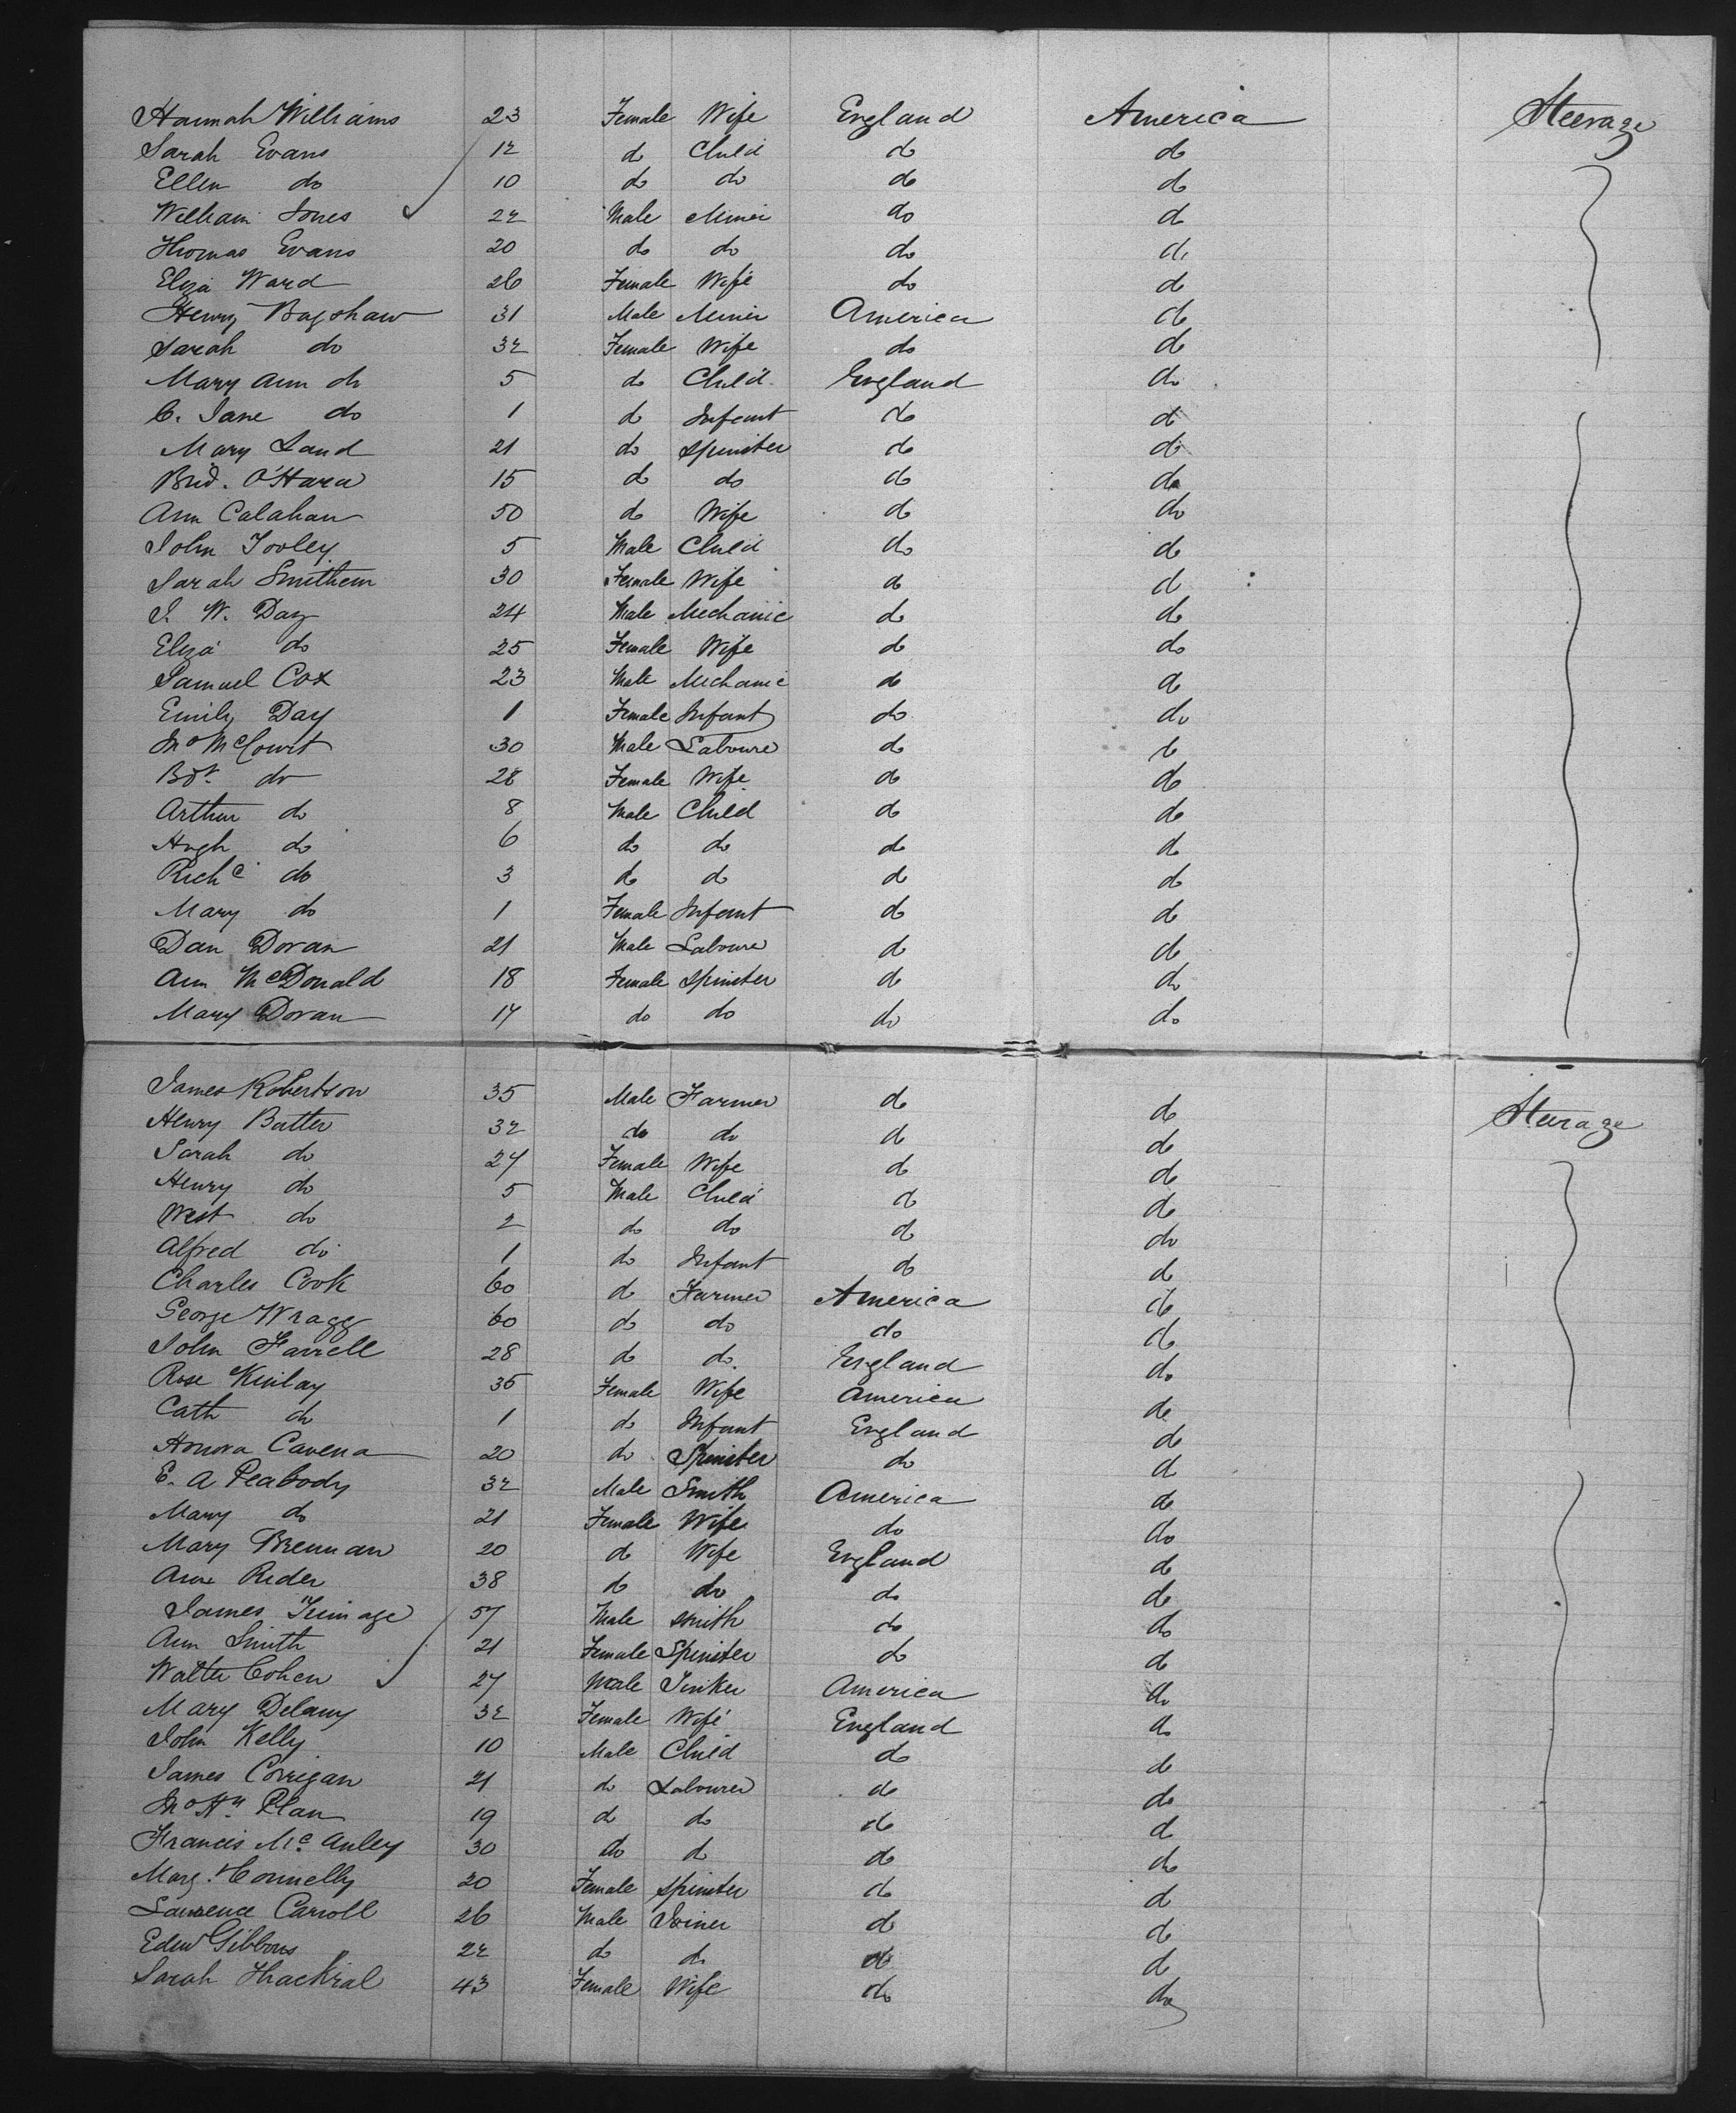 Hannah Williams 23 Female Wife England America Steerage
Sarah Evans 12 do Child do do
Ellen do 10 do do do do
William Jones 22 Male Miner do do
Thomas Evans 20 do do do do
Eliza Ward 26 Female Wife do do
Henry Bagshaw 31 Male Miner America do
Sarah do 32 Female Wife do do
Mary Ann do 5 do Child England do
C. Jane do 1 do Infant do do
Mary Land 21 do Spinster do do
Brid. O'Hara 15 do do do do
Ann Calahan 50 do Wife do do
John Tooley 5 Male Child do do
Sarah Smithem 30 Female Wife do do
J. W. Day 24 Male Mechanic do do
Eliza do 25 Female Wife do do
Samuel Cox 23 Male Mechanic do do
Emily Day 1 Female Infant do do
Jno McCourt 30 Male Laboure do do
Bdt. do 28 Female Wife do do
Arthur do 8 Male Child do do
Hugh do 6 do do do do
Richd do 3 do do do do
Mary do 1 Female Infant do do
Dan Doran 21 Male Laboure do do
Ann McDonald 18 Female Spinster do do
Mary Doran 17 do do do do
James Robertson 35 Male Farmer do do Steerage
Henry Butter 32 do do do do
Sarah do 27 Female Wife do do
Henry do 5 Male Child do do
West do 2 do do do do
Alfred do 1 do Infant do do
Charles Cook 60 do Farmer America do
George Wragg 60 do do do do
John Farrell 28 do do England do
Rose Kinlay 35 Female Wife America do
Cath do 1 do Infant England do
Honora Cavena 20 do Spinster do do
E. A Peabody 32 Male Smith America do
Mary do 21 Female Wife do do
Mary Brennan 20 do Wife England do
Ann Rider 38 do do do do
James 57 Male Smith do do
Ann Smith 21 Female Spinster do do
Walter Cohen 27 Male Tinker America do
Mary Delany 32 Female Wife England do
John Kelly 10 Male Child do do
James Corrigan 21 do Labourer do do
Jno Hy. Plan 19 do do do do
Francis Mc Auley 30 do do do do
Marg. Connelly 20 Female Spinster do do
Lawrence Carroll 26 Male Joiner do do
Edwd Gibbons 22 do do do do
Sarah Thackral 43 Female Wife do do